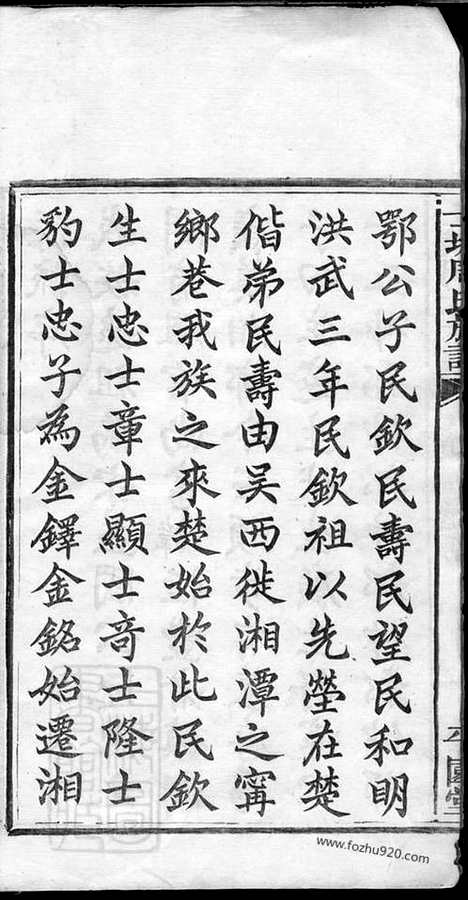 鄂公子民欽民壽民望民和明
洪武三年民欽祖以先塋在楚
偕弟民壽由吴西徙湘潭之甯
鄉巷我族之來楚始於此民欽
生士忠士章士顯士奇士隆士
豹士忠子為金鐸金銘始遷湘
www.fozhu920.com